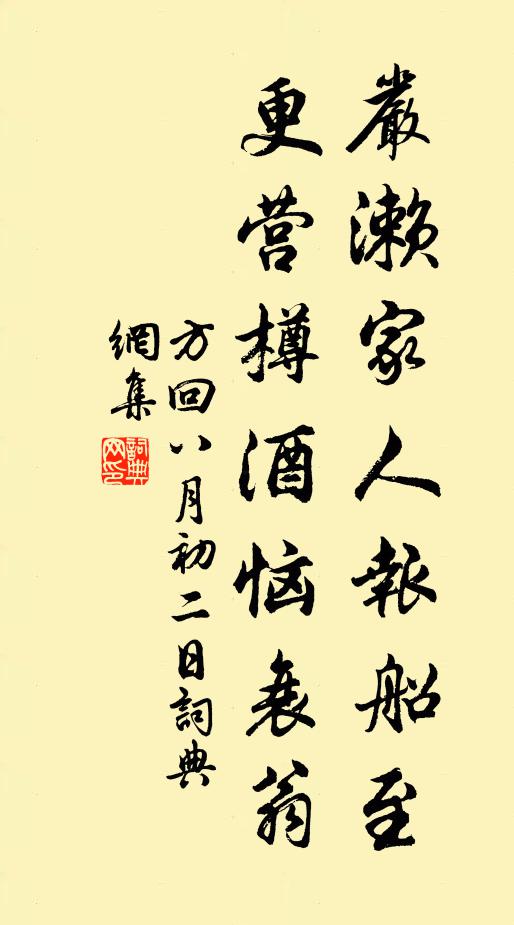 嚴瀨家人報船至
更营樽酒恼衰翁
方回八月初二日詞典
網集
詞典
网印